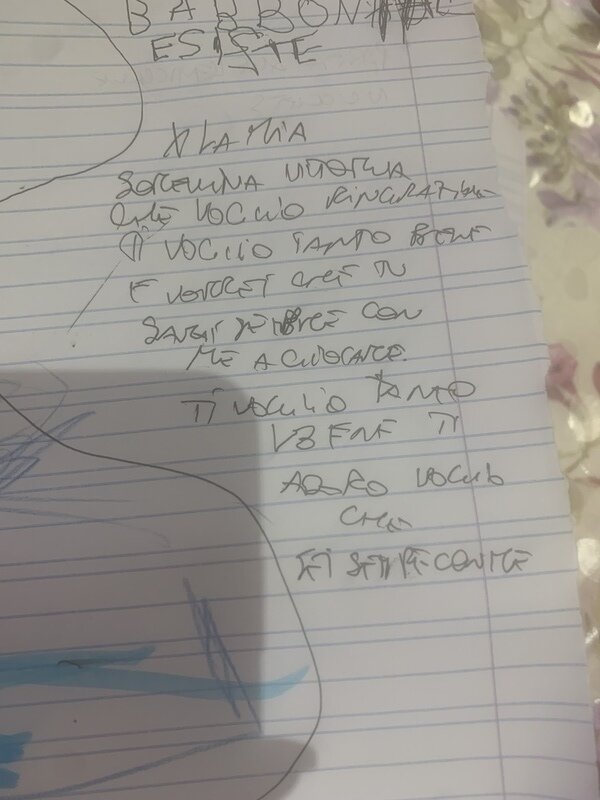 BABBO NATALE
ESISTE
X LA MIA
SORELLINA VITTORIA
CHE VOGLIO RINGRAZIARE
TI VOGLIO TANTO BENE
E VORREI CHE TU
SARAI SEMPRE CON
ME A GIOCARE.
TI VOGLIO TANTO
BENE TI
ADORO VOGLIO
CHE
SEI SEMPRE CON ME